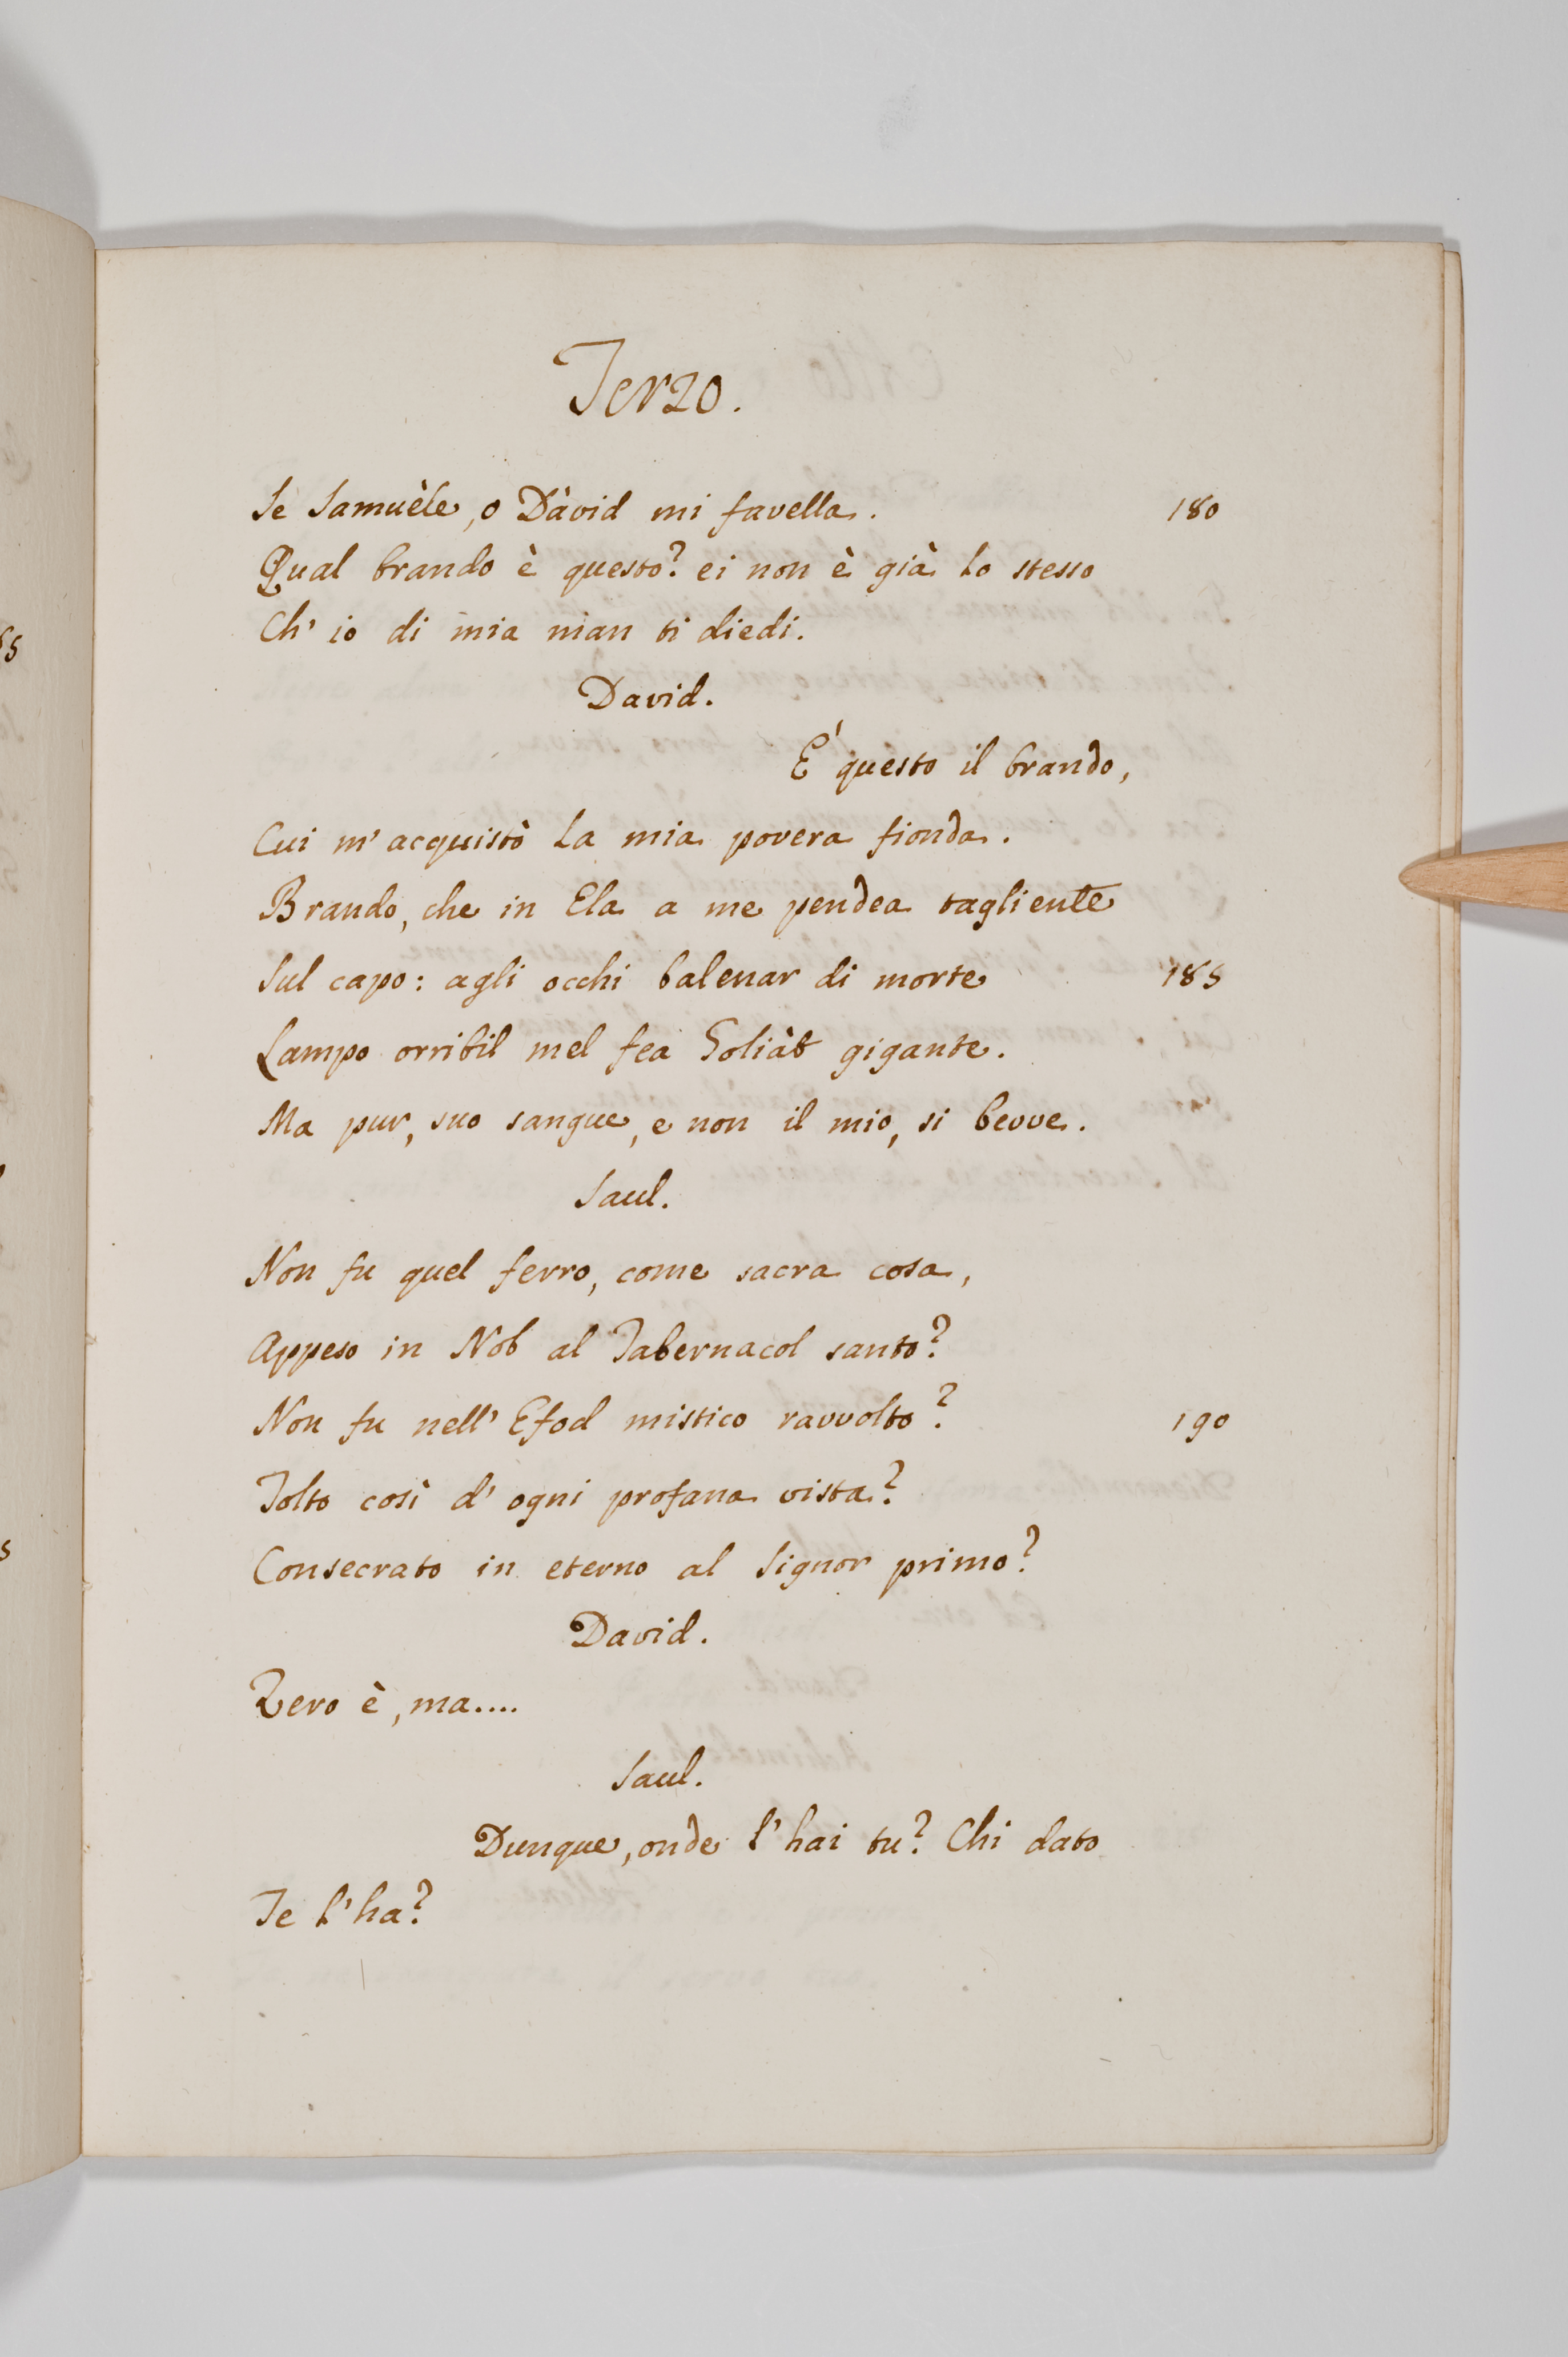 Terzo.
Se Samuèle, o Dàvid mi favella. 180
Qual brando è questo? ei non è già lo stesso
Ch' io di mia man ti diedi.
David.
É questo il brando,
Cui m' acquistò la mia povera fionda.
Brando, che in Ela a me pendea tagliente
Sul capo: agli occhi balenar di morte 185
Lampo orribil mel fea Goliàt gigante.
Ma pur, suo sangue, e non il mio, si bevve.
Saul.
Non fu quel ferro, come sacra cosa,
Appeso in Nob al Tabernacol santo?
Non fu nell' Efod mistico ravvolto? 190
Tolto così d' ogni profana vista?
Consecrato in eterno al Signor primo?
David.
Vero è, ma....
Saul.
Dunque, onde l' hai tu? Chi dato
Te l' ha?